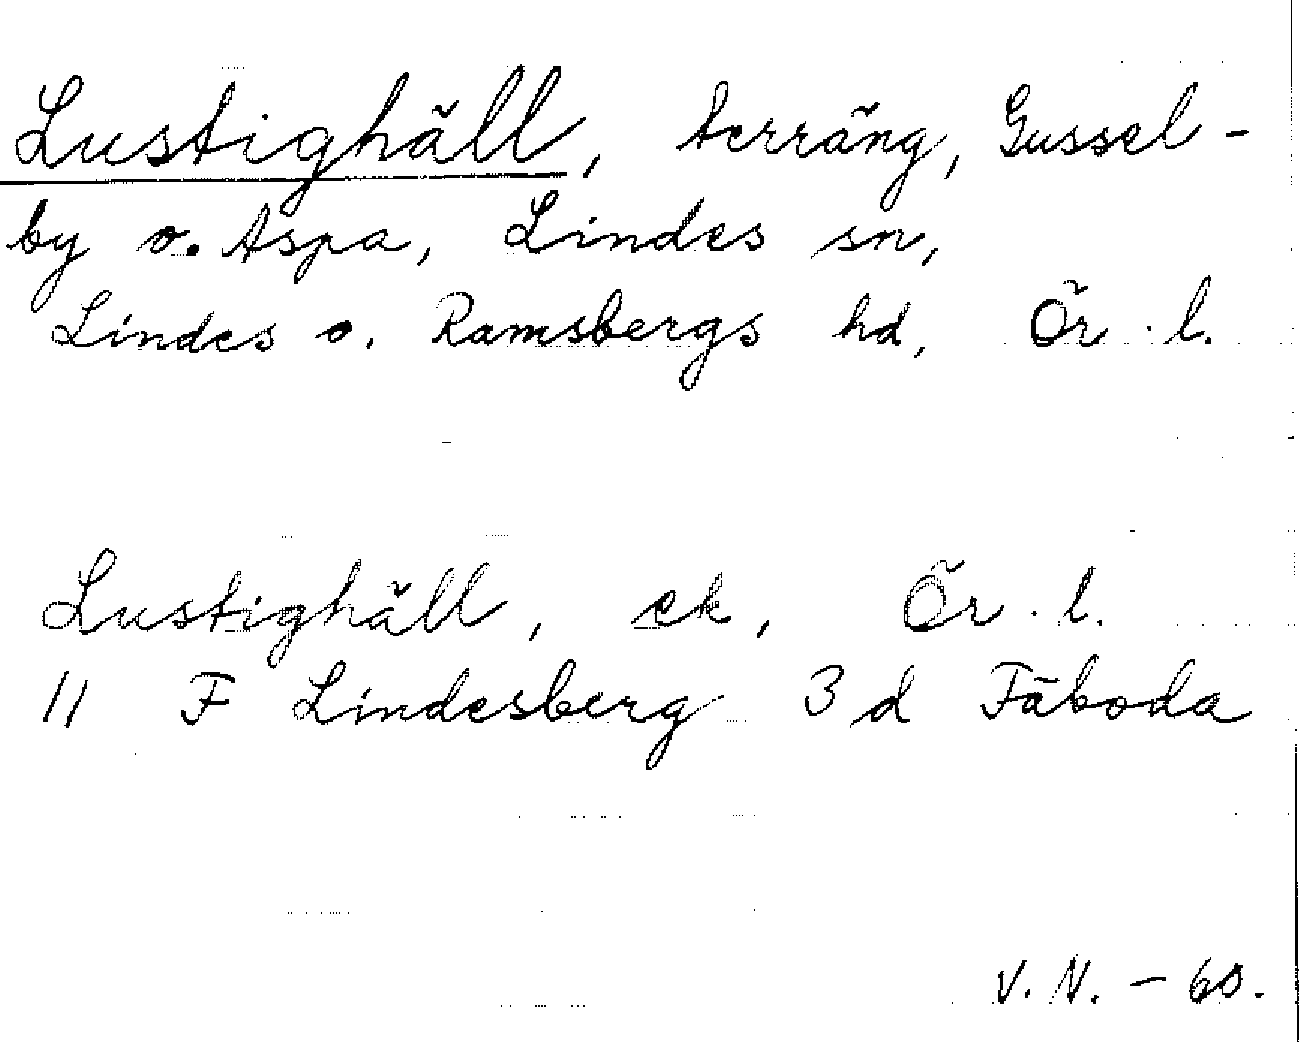 Lustighäll, terräng, Gussel-
by o. Aspa, Lindes sn,
Lindes o. Ramsbergs hd, Ör. l.
Lustighäll, ek, Ör. l.
11 F Lindesberg 3 d Fäboda
V. N. - 60.